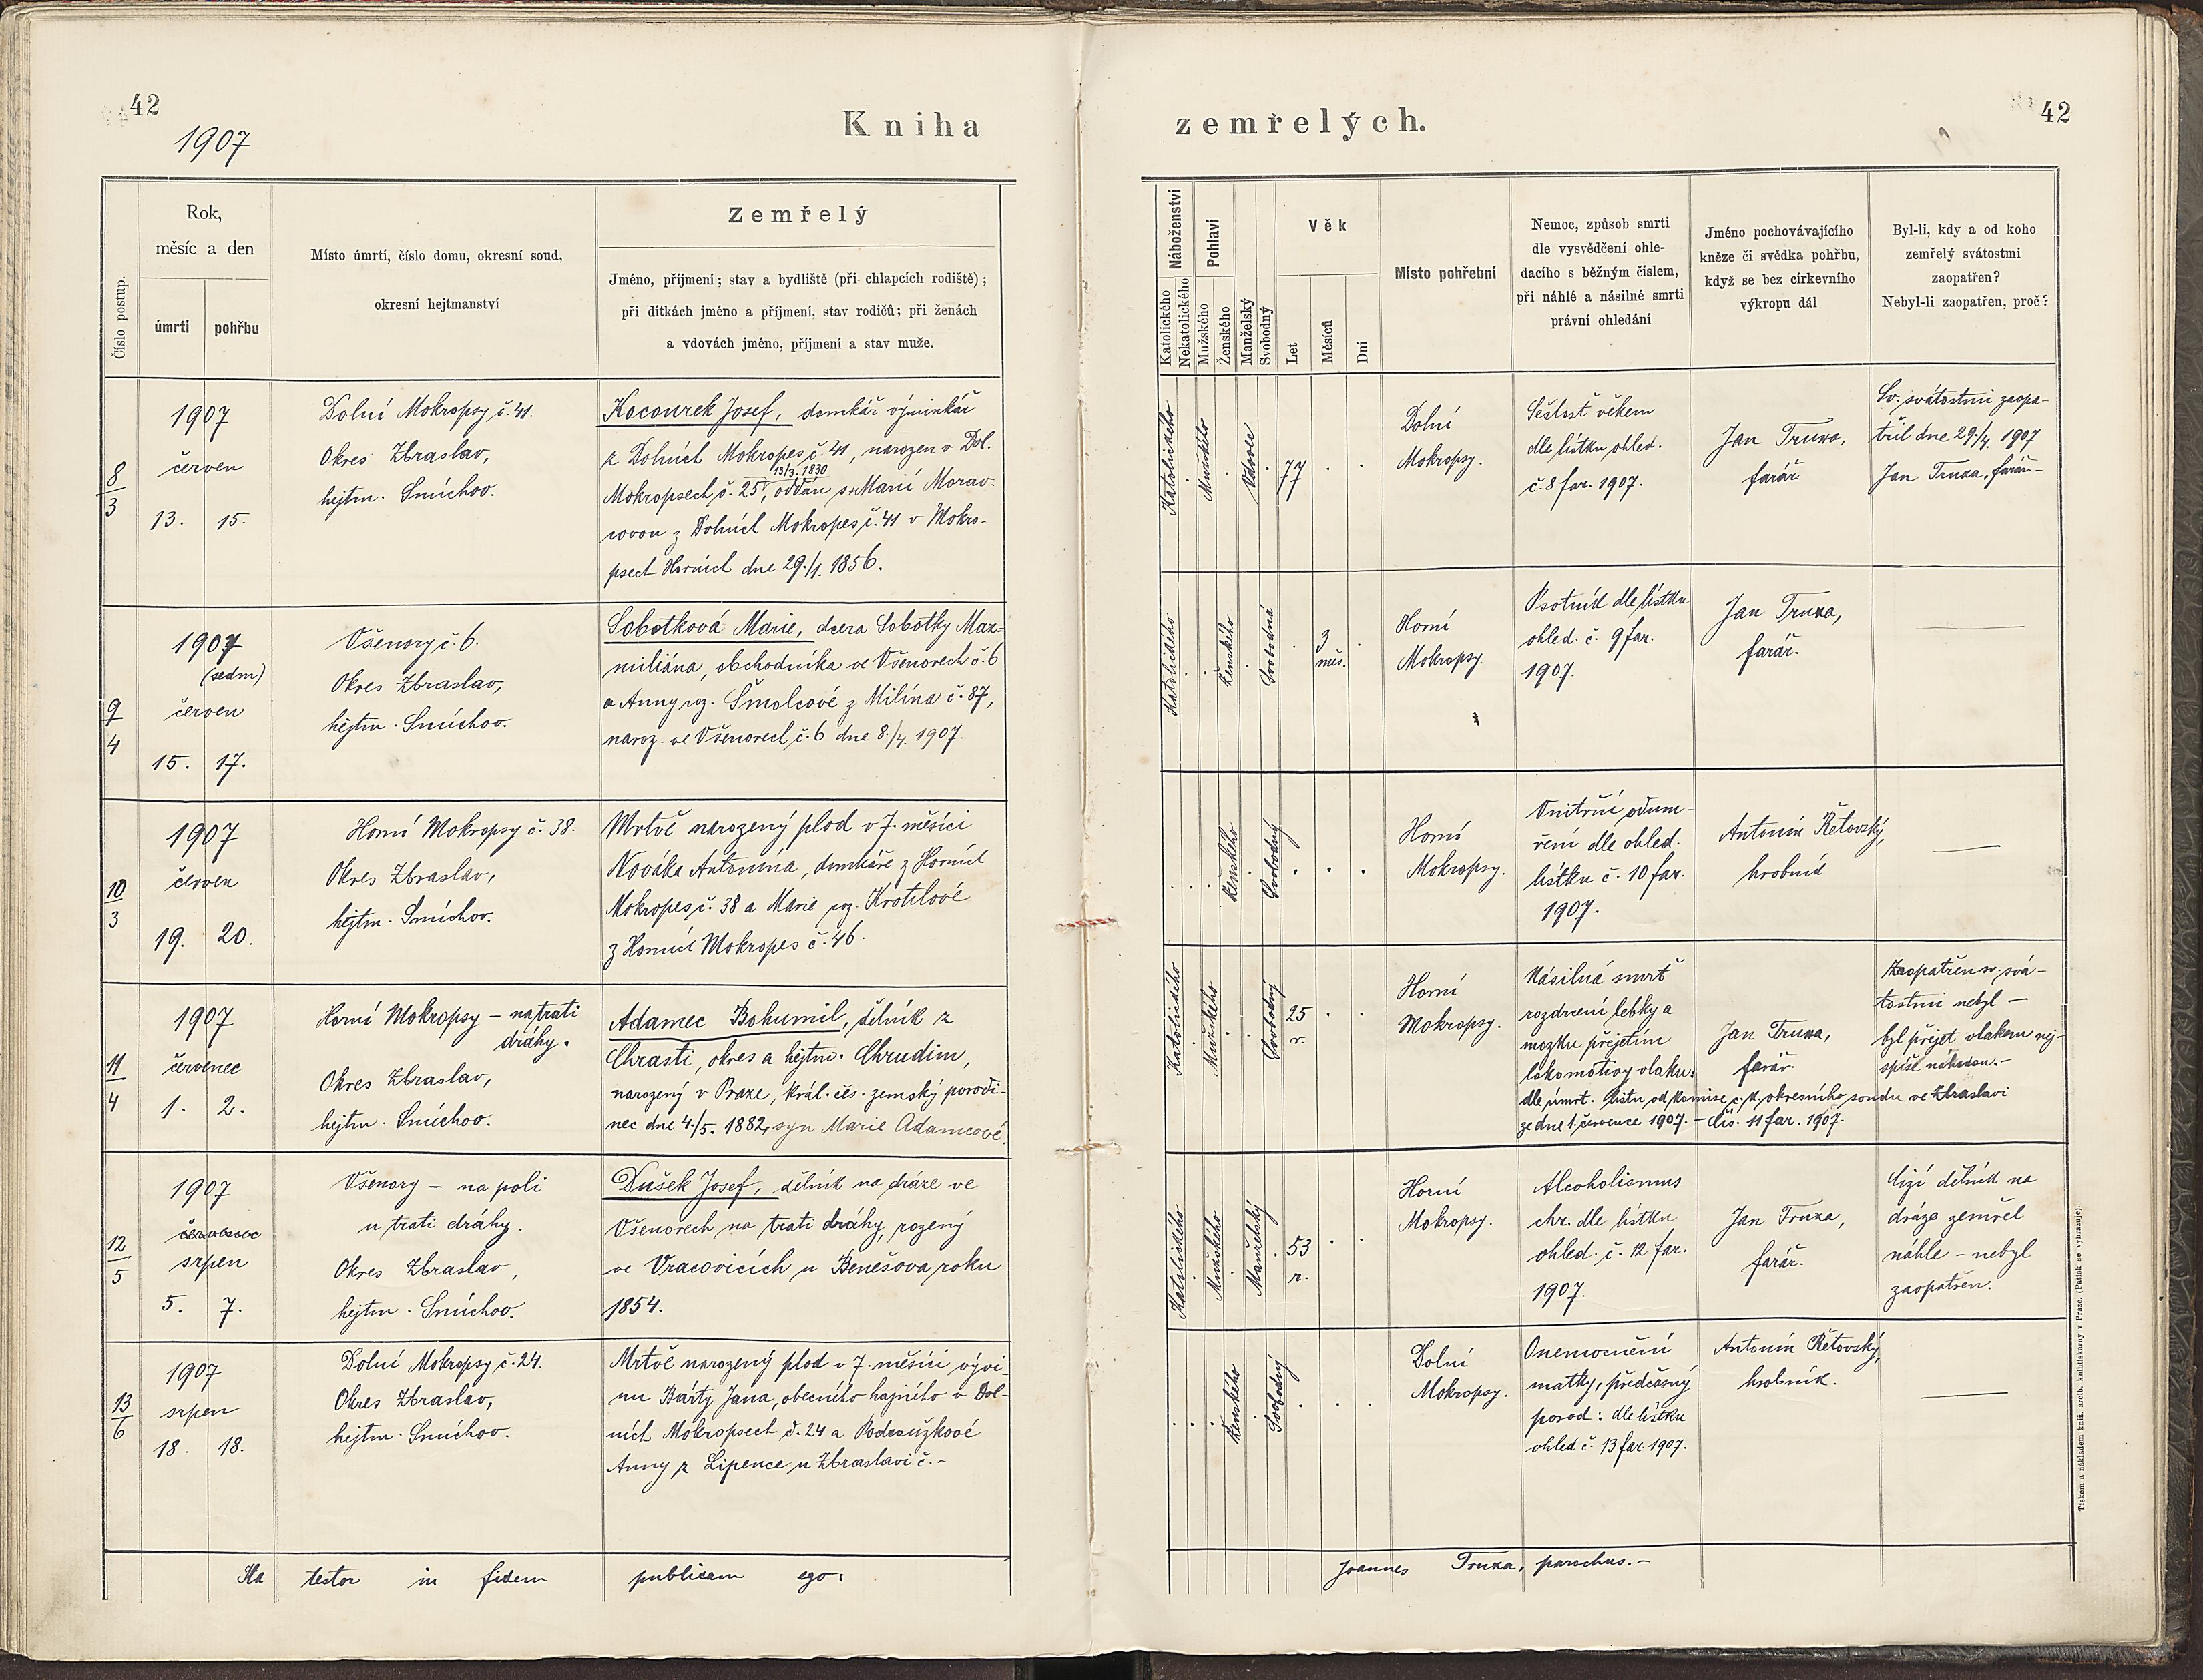 42
1907
Kniha
zemřelých.
42
Číslo postup.
Rok,
měsíc a den
úmrtí
pohřbu
Místo úmrtí, číslo domu, okresní soud,
okresní hejtmanství
Zemřelý
Jméno, příjmení; stav a bydliště (při chlapcích rodiště);
při dítkách jméno a příjmení, stav rodičů; při ženách
a vdovách jméno, příjmení a stav muže.
Náboženství
Katolického
Nekatolického
Pohlaví
Mužského
Ženského
Manželský
Svobodný
Věk
Let
Měsíců
Dní
Místo pohřební
Nemoc, způsob smrti
dle vysvědčení ohle-
dacího s běžným číslem,
při náhlé a násilné smrti
právní ohledání
Jméno pochovávajícího
kněze či svědka pohřbu,
když se bez církevního
výkropu dál
Byl-li, kdy a od koho
zemřelý svátostmi
zaopatřen?
Nebyl-li zaopatřen, proč?
8
3
1907
červen
13. 15.
Dolní Mokropsy č. 41.
Okres Zbraslav,
hejtm. Smíchov.
Kocourek Josef, domkář výminkář
z Dolních Mokropes č. 41, narozen v Dol.
13/3. 1830
Mokropsech č. 25, oddán s Marií Morav-
covou z Dolních Mokropes č. 41 v Mokro-
psech Horních dne 29./1. 1856.
Katolického
Mužského
Vdovec
77
Dolní
Mokropsy.
Sešlost věkem
dle lístku ohled.
č. 8 far. 1907.
Jan Truxa,
farář.
Sv. svátostmi zaopa-
třil dne 29./4. 1907
Jan Truxa, farář.-
9
4
1907
(sedm)
červen
15. 17.
Všenory č. 6.
Okres Zbraslav,
hejtm. Smíchov.
Sobotková Marie, dcera Sobotky Max-
miliána, obchodníka ve Všenorech č. 6
a Anny roz. Šmolcové z Milína č. 87,
naroz. ve Všenorech č. 6 dne 8./4. 1907.
Katolického
Ženského
Svobodná
3
měs.
Horní
Mokropsy.
Psotník dle lístku
ohled. č. 9 far.
1907.
Jan Truxa,
farář.
10
3
1907
červen
19. 20.
Horní Mokropsy č. 38.
Okres Zbraslav,
hejtm. Smíchov.
Mrtvě narozený plod v 7. měsíci
Nováka Antonína, domkáře z Horních
Mokropes č. 38 a Marie roz. Krotilové
z Horních Mokropes č. 46.
Ženského
Svobodný
Horní
Mokropsy.
Vnitřní odum-
ření dle ohled.
lístku č. 10 far.
1907.
Antonín Řetovský,
hrobník
11
4
1907
červenec
1. 2.
Horní Mokropsy – na trati
dráhy.
Okres Zbraslav,
hejtm. Smíchov.
Adamec Bohumil, dělník z
Chrasti, okres a hejtm. Chrudim,
narozený v Praze, král. čes. zemský porodi-
nec dne 4./5. 1882, syn Marie Adamcové.
Katolického
Mužského
Svobodný
25
r.
Horní
Mokropsy.
Násilná smrt
rozdrcení lebky a
mozku přejetím
lokomotivy vlaku:
dle úmrt. listu od komise c. k. okresního soudu ve Zbraslavi
ze dne 1. července 1907. – čís. 11 far. 1907.
Jan Truxa,
farář.
Zaopatřen sv. svá-
tostmi nebyl –
byl přejet vlakem nej-
spíše náhodou.–
12
5
1907
červenec
srpen
5. 7.
Všenory – na poli
u trati dráhy.
Okres Zbraslav,
hejtm. Smíchov.
Dušek Josef, dělník na dráze ve
Všenorech na trati dráhy, rozený
ve Vracovicích u Benešova roku
1854.
Katolického
Mužského
Manželský
53
r.
Horní
Mokropsy.
Alcoholismus
chr. dle lístku
ohled. č. 12 far.
1907.
Jan Truxa,
farář.
Cizí dělník na
dráze zemřel
náhle – nebyl
zaopatřen.
13
6
1907
srpen
18. 18.
Dolní Mokropsy č. 24.
Okres Zbraslav,
hejtm. Smíchov.
Mrtvě narozený plod v 7. měsíci vývi-
nu Bárty Jana, obecního hajného v Dol-
ních Mokropsech č. 24 a Podroužkové
Anny z Lipence u Zbraslavi č.–
Ženského
Svobodný
Dolní
Mokropsy.
Onemocnění
matky, předčasný
porod: dle lístku
ohled č. 13 far. 1907.
Antonín Řetovský,
hrobník.
Ita testor in fidem publicam ego:
Joannes Truxa, parochus.–
Tiskem a nákladem kníž. arcib. knihtiskárny v Praze. (Patisk se vyhrazuje).